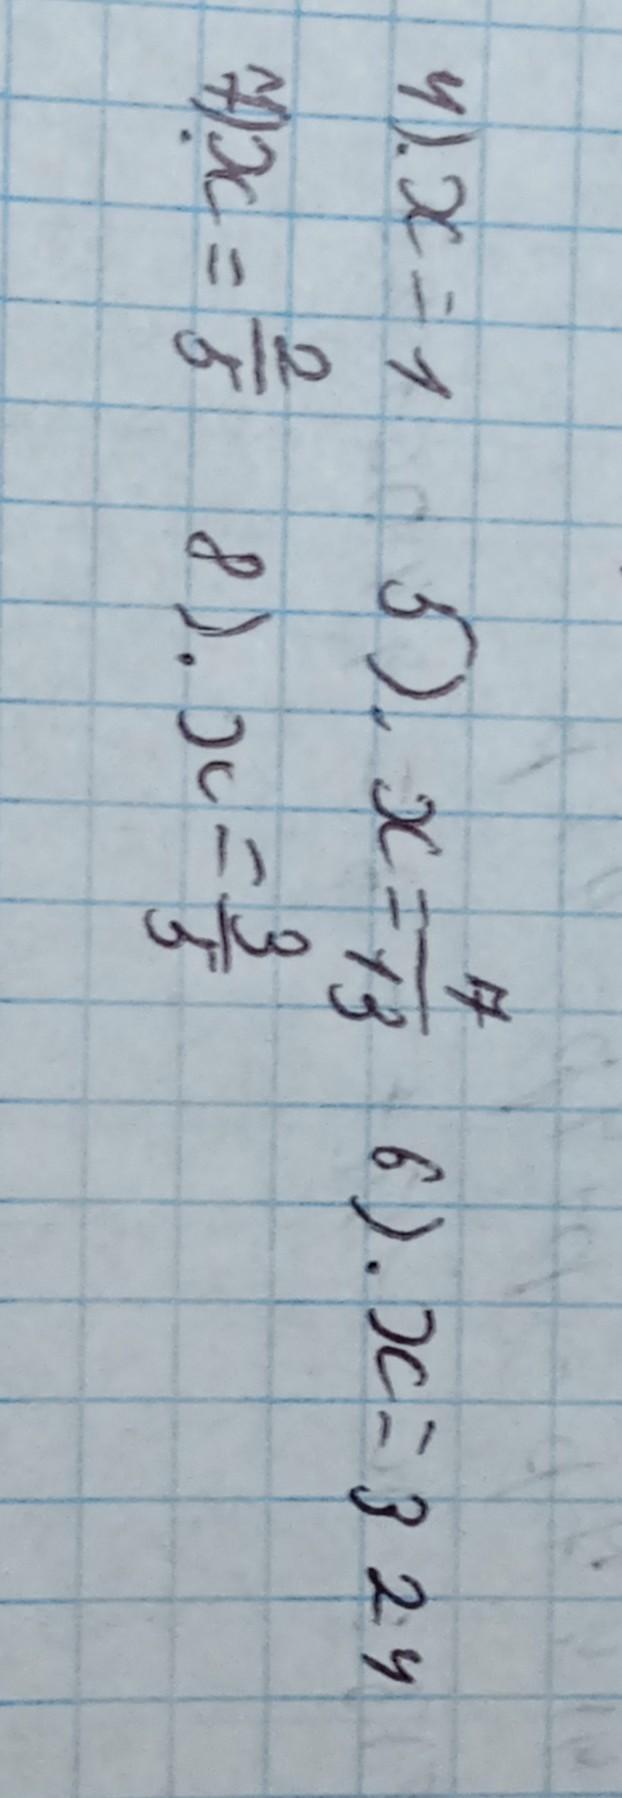 4). x = 1 5). x = 7/13 6). x = 3 24
7). x = 2/5 8). x = 3/5